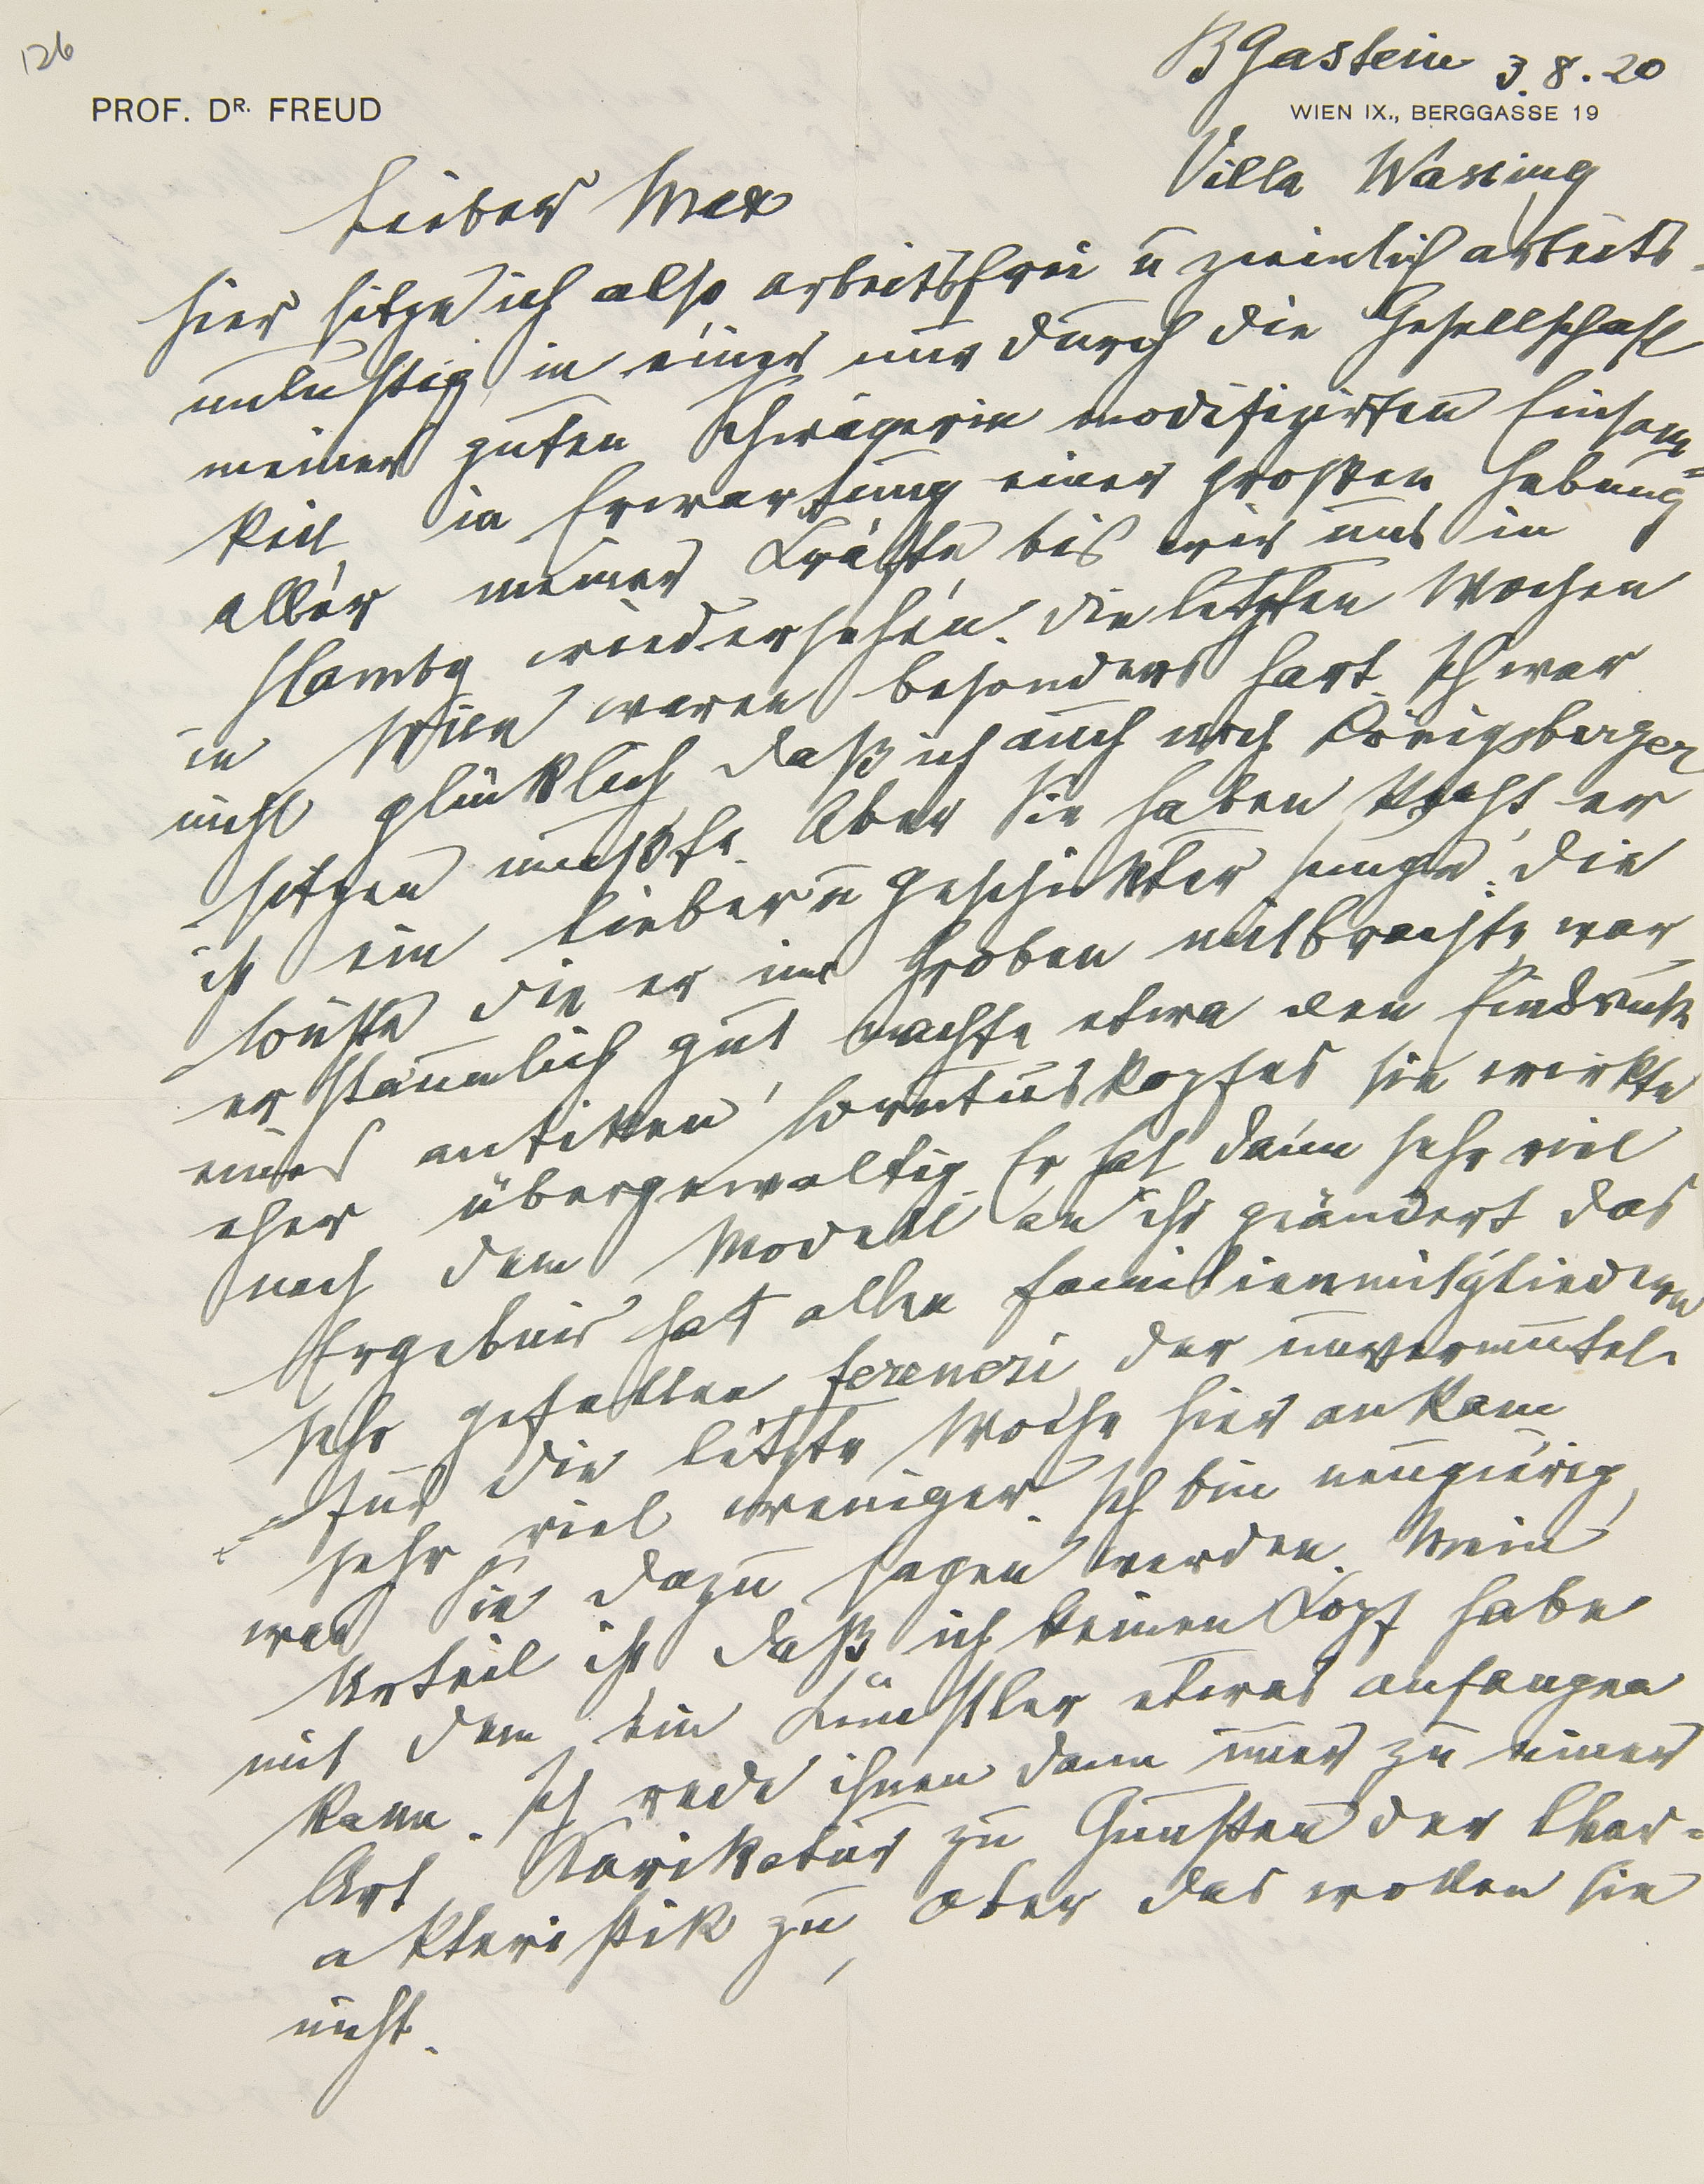 126
BGastein 3.8.20
PROF. DR. FREUD
WIEN IX., BERGGASSE 19
Villa Wassing
Lieber Max
hier sitze ich also arbeitsfrei u ziemlich arbeits-
unlustig in einer nur durch die Gesellschaft
meiner guten Schwägerin modifizirten Einsam-
keit, in Erwartung einer großen Hebung
aller meiner Kräfte bis wir uns in
Hambg wiedersehen. Die letzten Wochen
in Wien waren besonders hart. Ich war
nicht glücklich, daß ich auch noch Königsberger
sitzen mußte. Aber Sie haben Recht er
ist ein lieber u geschickter Junge. Die
Büste die er im Groben mitbrachte, war
erstaunlich gut machte etwa den Eindruck
eines antiken Brutuskopfes sie wirkte
eher übergewaltig. Er hat dann sehr viel
nach dem Modell an ihr geändert das
Ergebnis hat allen Familienmitgliedern
sehr gefallen Ferenczi, der unvermutet
für die letzte Woche hier ankam
sehr viel weniger. Ich bin neugierig,
was Sie dazu sagen werden. Mein
Urteil ist, daß ich keinen Kopf habe
mit dem ein Künstler etwas anfangen
kann. Ich rede ihnen dann immer zu einer
Art Karikatur zu Gunsten der Char-
akteristik zu, aber das wollen sie
nicht.